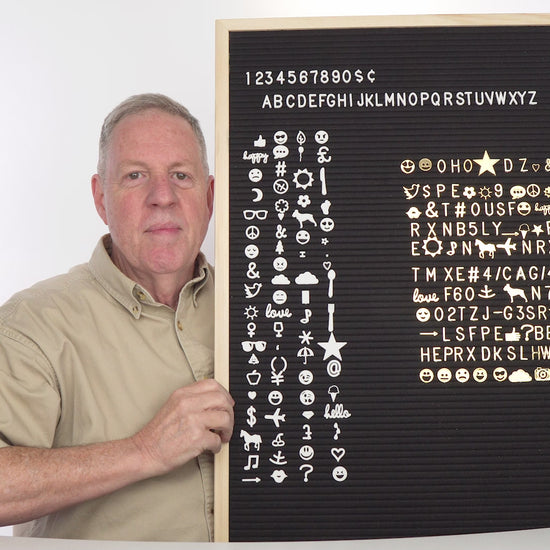 1234567890$¢
ABCDEFGHIJKLMNOPQRSTUVWXYZ
happy
£
#
&
love
?
$
@
hello
3
?
OHO★DZ♡&
SPE 9
&T#OUSF happy
RXNB5LY
E N NR
TMXE#4/CAG/
love F60 N
O2TZJ-G3SR
→LSFPE ?BE
HEPRXDKSLHW